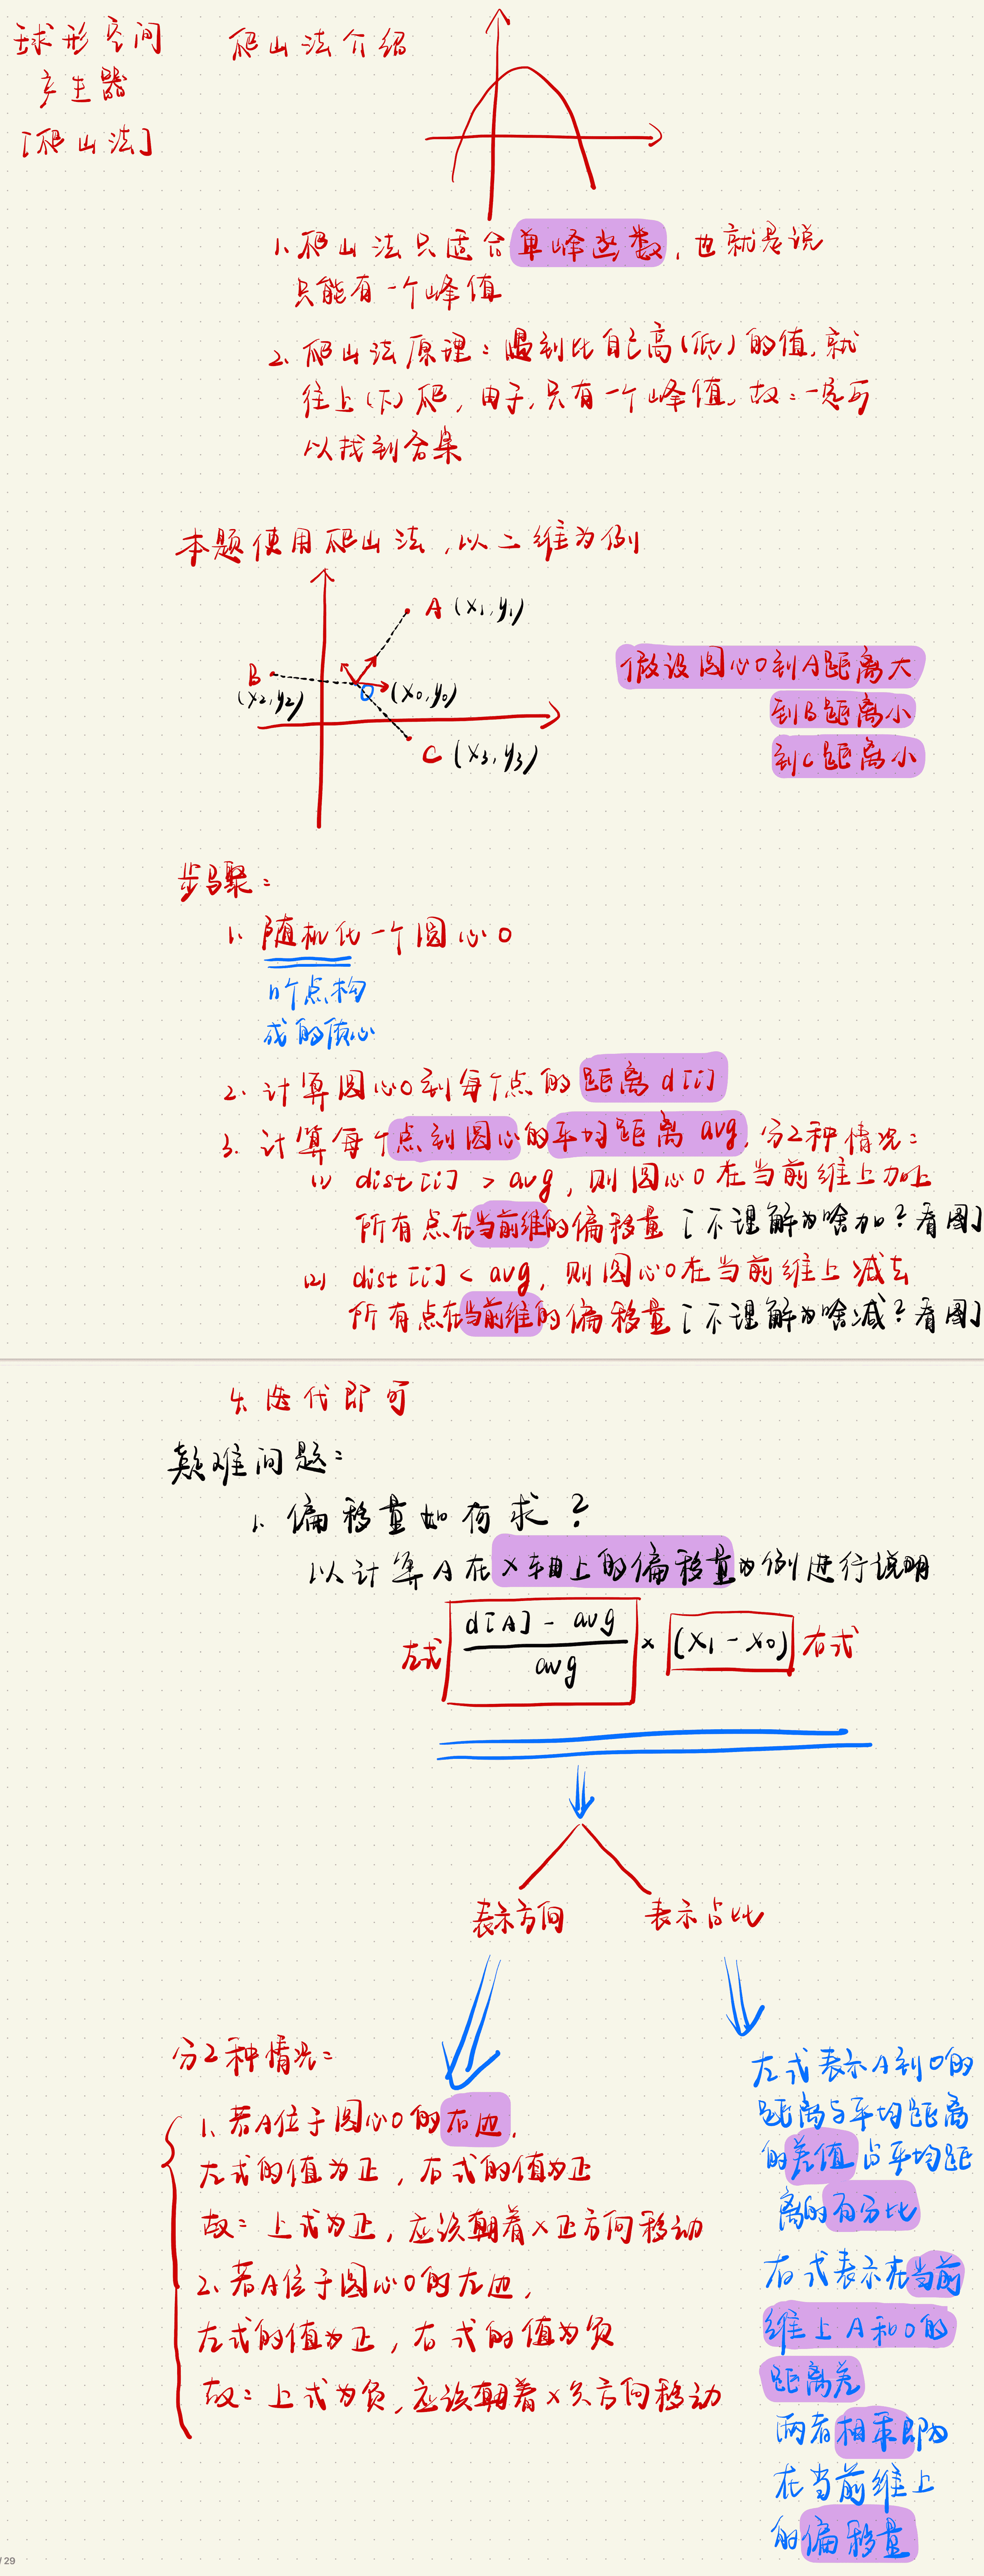 球形空间
产生器
[爬山法]
爬山法介绍
1. 爬山法只适合单峰函数，也就是说
只能有一个峰值
2. 爬山法原理：遇到比自己高(低)的值，就
往上(下)爬，由于，只有一个峰值，故：一定可
以找到答案
本题使用爬山法，以二维为例
A (x1, y1)
B
(x2, y2)
O (x0, y0)
C (x3, y3)
假设圆心O到A距离大
到B距离小
到C距离小
步骤：
1. 随机化一个圆心O
n个点构
成的质心
2. 计算圆心O到每个点的距离 d[i]
3. 计算每个点到圆心的平均距离 avg，分2种情况：
(1) dist[i] > avg，则圆心O在当前维上加上
所有点在当前维的偏移量 [不理解为啥加？看图]
(2) dist[i] < avg，则圆心O在当前维上减去
所有点在当前维的偏移量 [不理解为啥减？看图]
4. 迭代即可
疑难问题：
1. 偏移量如何求？
以计算A在x轴上的偏移量为例进行说明
左式 (d[A] - avg) / avg × (x1 - x0) 右式
表示方向
表示占比
分2种情况：
1. 若A位于圆心O的右边，
左式的值为正，右式的值为正
故：上式为正，应该朝着x正方向移动
2. 若A位于圆心O的左边，
左式的值为正，右式的值为负
故：上式为负，应该朝着x负方向移动
左式表示A到O的
距离与平均距离
的差值占平均距
离的百分比
右式表示在当前
维上A和O的
距离差
两者相乘即为
在当前维上
的偏移量
/ 29